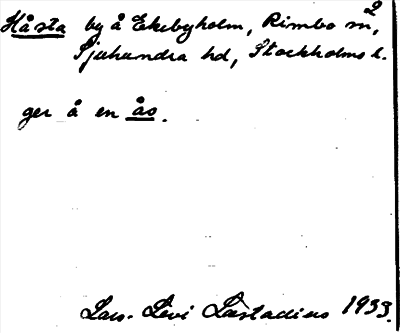 Håsta by å Ekebyholm, Rimbo sn,
Sjuhundra hd, Stockholms l.
ger å en ås.
Lars-Levi Læstadius 1933.